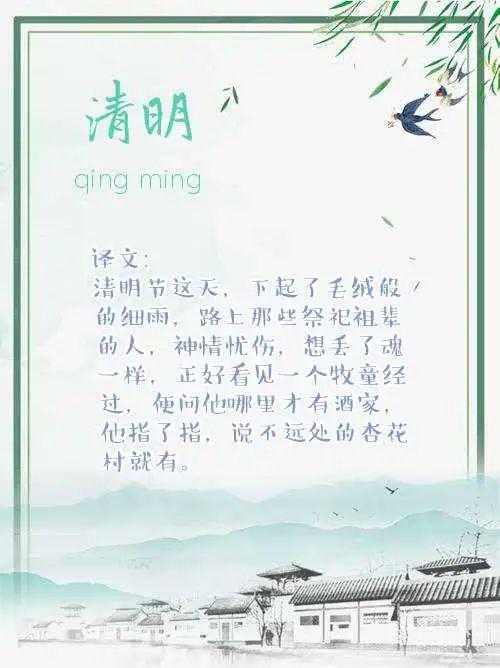 清明
qing ming
译文:
清明节这天，下起了毛绒般
的细雨，路上那些祭祀祖辈
的人，神情忧伤，想丢了魂
一样，正好看见一个牧童经
过，便问他哪里才有酒家，
他指了指，说不远处的杏花
村就有。